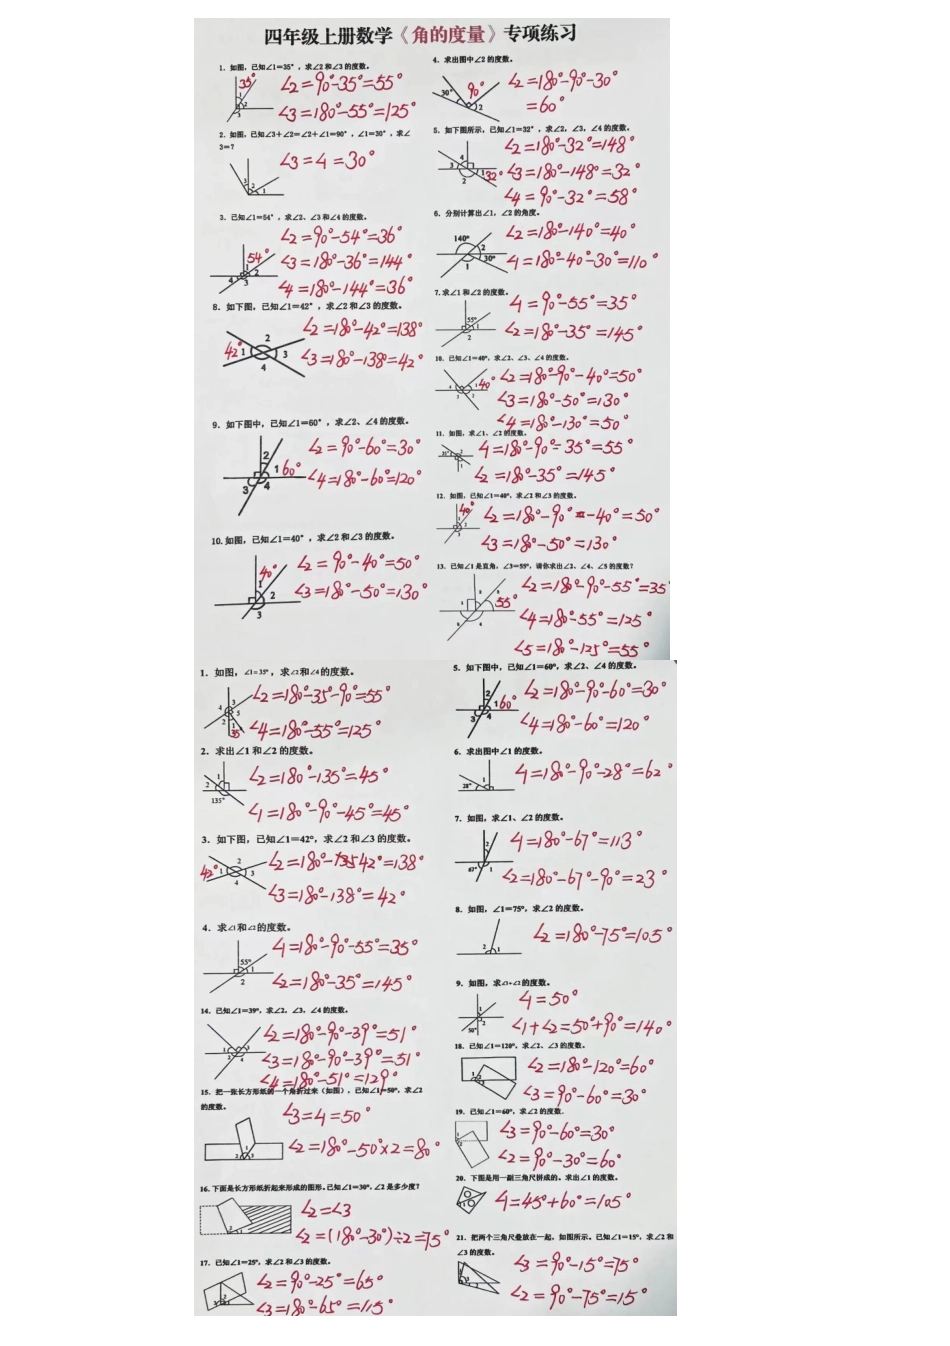 四年级上册数学《角的度量》专项练习
1、如图，已知∠1=35°，求∠2和∠3的度数。
35°
∠2=90°-35°=55°
∠3=180°-55°=125°
2、如图，已知∠3+∠2=∠2+∠1=90°，∠1=30°，求∠
3=?
∠3=∠1=30°
3、已知∠1=54°，求∠2、∠3和∠4的度数。
54°
∠2=90°-54°=36°
∠3=180°-36°=144°
∠4=180°-144°=36°
8、如下图，已知∠1=42°，求∠2和∠3的度数。
42°
∠2=180°-42°=138°
∠3=180°-138°=42°
9、如下图中，已知∠1=60°，求∠2、∠4的度数。
60°
∠2=90°-60°=30°
∠4=180°-60°=120°
10.如图，已知∠1=40°，求∠2和∠3的度数。
40°
∠2=90°-40°=50°
∠3=180°-50°=130°
4、求出图中∠2的度数。
30° 90° 2
∠2=180°-90°-30°
=60°
5、如下图所示，已知∠1=32°，求∠2，∠3，∠4的度数。
32°
∠2=180°-32°=148°
∠3=180°-148°=32°
∠4=90°-32°=58°
6、分别计算出∠1，∠2的角度。
140° 2 30° 1
∠2=180°-140°=40°
∠1=180°-40°-30°=110°
7.求∠1和∠2的度数。
55° 1 2
∠1=90°-55°=35°
∠2=180°-35°=145°
10、已知∠1=40°，求∠2、∠3、∠4的度数。
40°
∠2=180°-90°-40°=50°
∠3=180°-50°=130°
∠4=180°-130°=50°
11、如图，求∠1、∠2的度数。
∠1=180°-90°-35°=55°
∠2=180°-35°=145°
12、如图，已知∠1=40°，求∠2和∠3的度数。
40°
∠2=180°-90°-40°=50°
∠3=180°-50°=130°
13、已知∠1是直角，∠3=55°，请你求出∠2、∠4、∠5的度数？
55°
∠2=180°-90°-55°=35
∠4=180°-55°=125°
∠5=180°-125°=55°
1、如图，∠1=35°，求∠2和∠4的度数。
35°
∠2=180°-35°-90°=55°
∠4=180°-55°=125°
2、求出∠1和∠2的度数。
135°
∠2=180°-135°=45°
∠1=180°-90°-45°=45°
3、如下图，已知∠1=42°，求∠2和∠3的度数。
42°
∠2=180°-42°=138°
∠3=180°-138°=42°
4、求∠1和∠2的度数。
55° 1 2
∠1=180°-90°-55°=35°
∠2=180°-35°=145°
14、已知∠1=39°，求∠2，∠3，∠4的度数。
∠2=180°-90°-39°=51°
∠3=180°-90°-39°=51°
∠4=180°-51°=129°
15、把一张长方形纸的一个角折过来（如图），已知∠1=50°，求∠2
的度数。
∠3=∠1=50°
∠2=180°-50°×2=80°
16、下面是长方形纸折起来形成的图形。已知∠1=30°，∠2是多少度？
∠2=∠3
∠2=(180°-30°)÷2=75°
17、已知∠1=25°，求∠2和∠3的度数。
∠2=90°-25°=65°
∠3=180°-65°=115°
5、如下图中，已知∠1=60°，求∠2、∠4的度数。
60°
∠2=180°-90°-60°=30°
∠4=180°-60°=120°
6、求出图中∠1的度数。
28° 1
∠1=180°-90°-28°=62°
7、如图，求∠1、∠2的度数。
67° 1 2
∠1=180°-67°=113°
∠2=180°-67°-90°=23°
8、如图，∠1=75°，求∠2的度数。
2 1
∠2=180°-75°=105°
9、如图，求∠1+∠2的度数。
50°
∠1=50°
∠1+∠2=50°+90°=140°
18、已知∠1=120°，求∠2、∠3的度数。
∠2=180°-120°=60°
∠3=90°-60°=30°
19、已知∠1=60°，求∠2的度数.
∠3=90°-60°=30°
∠2=90°-30°=60°
20、下图是用一副三角尺拼成的。求出∠1的度数。
∠1=45°+60°=105°
21、把两个三角尺叠放在一起，如图所示。已知∠1=15°，求∠2和
∠3的度数。
∠3=90°-15°=75°
∠2=90°-75°=15°